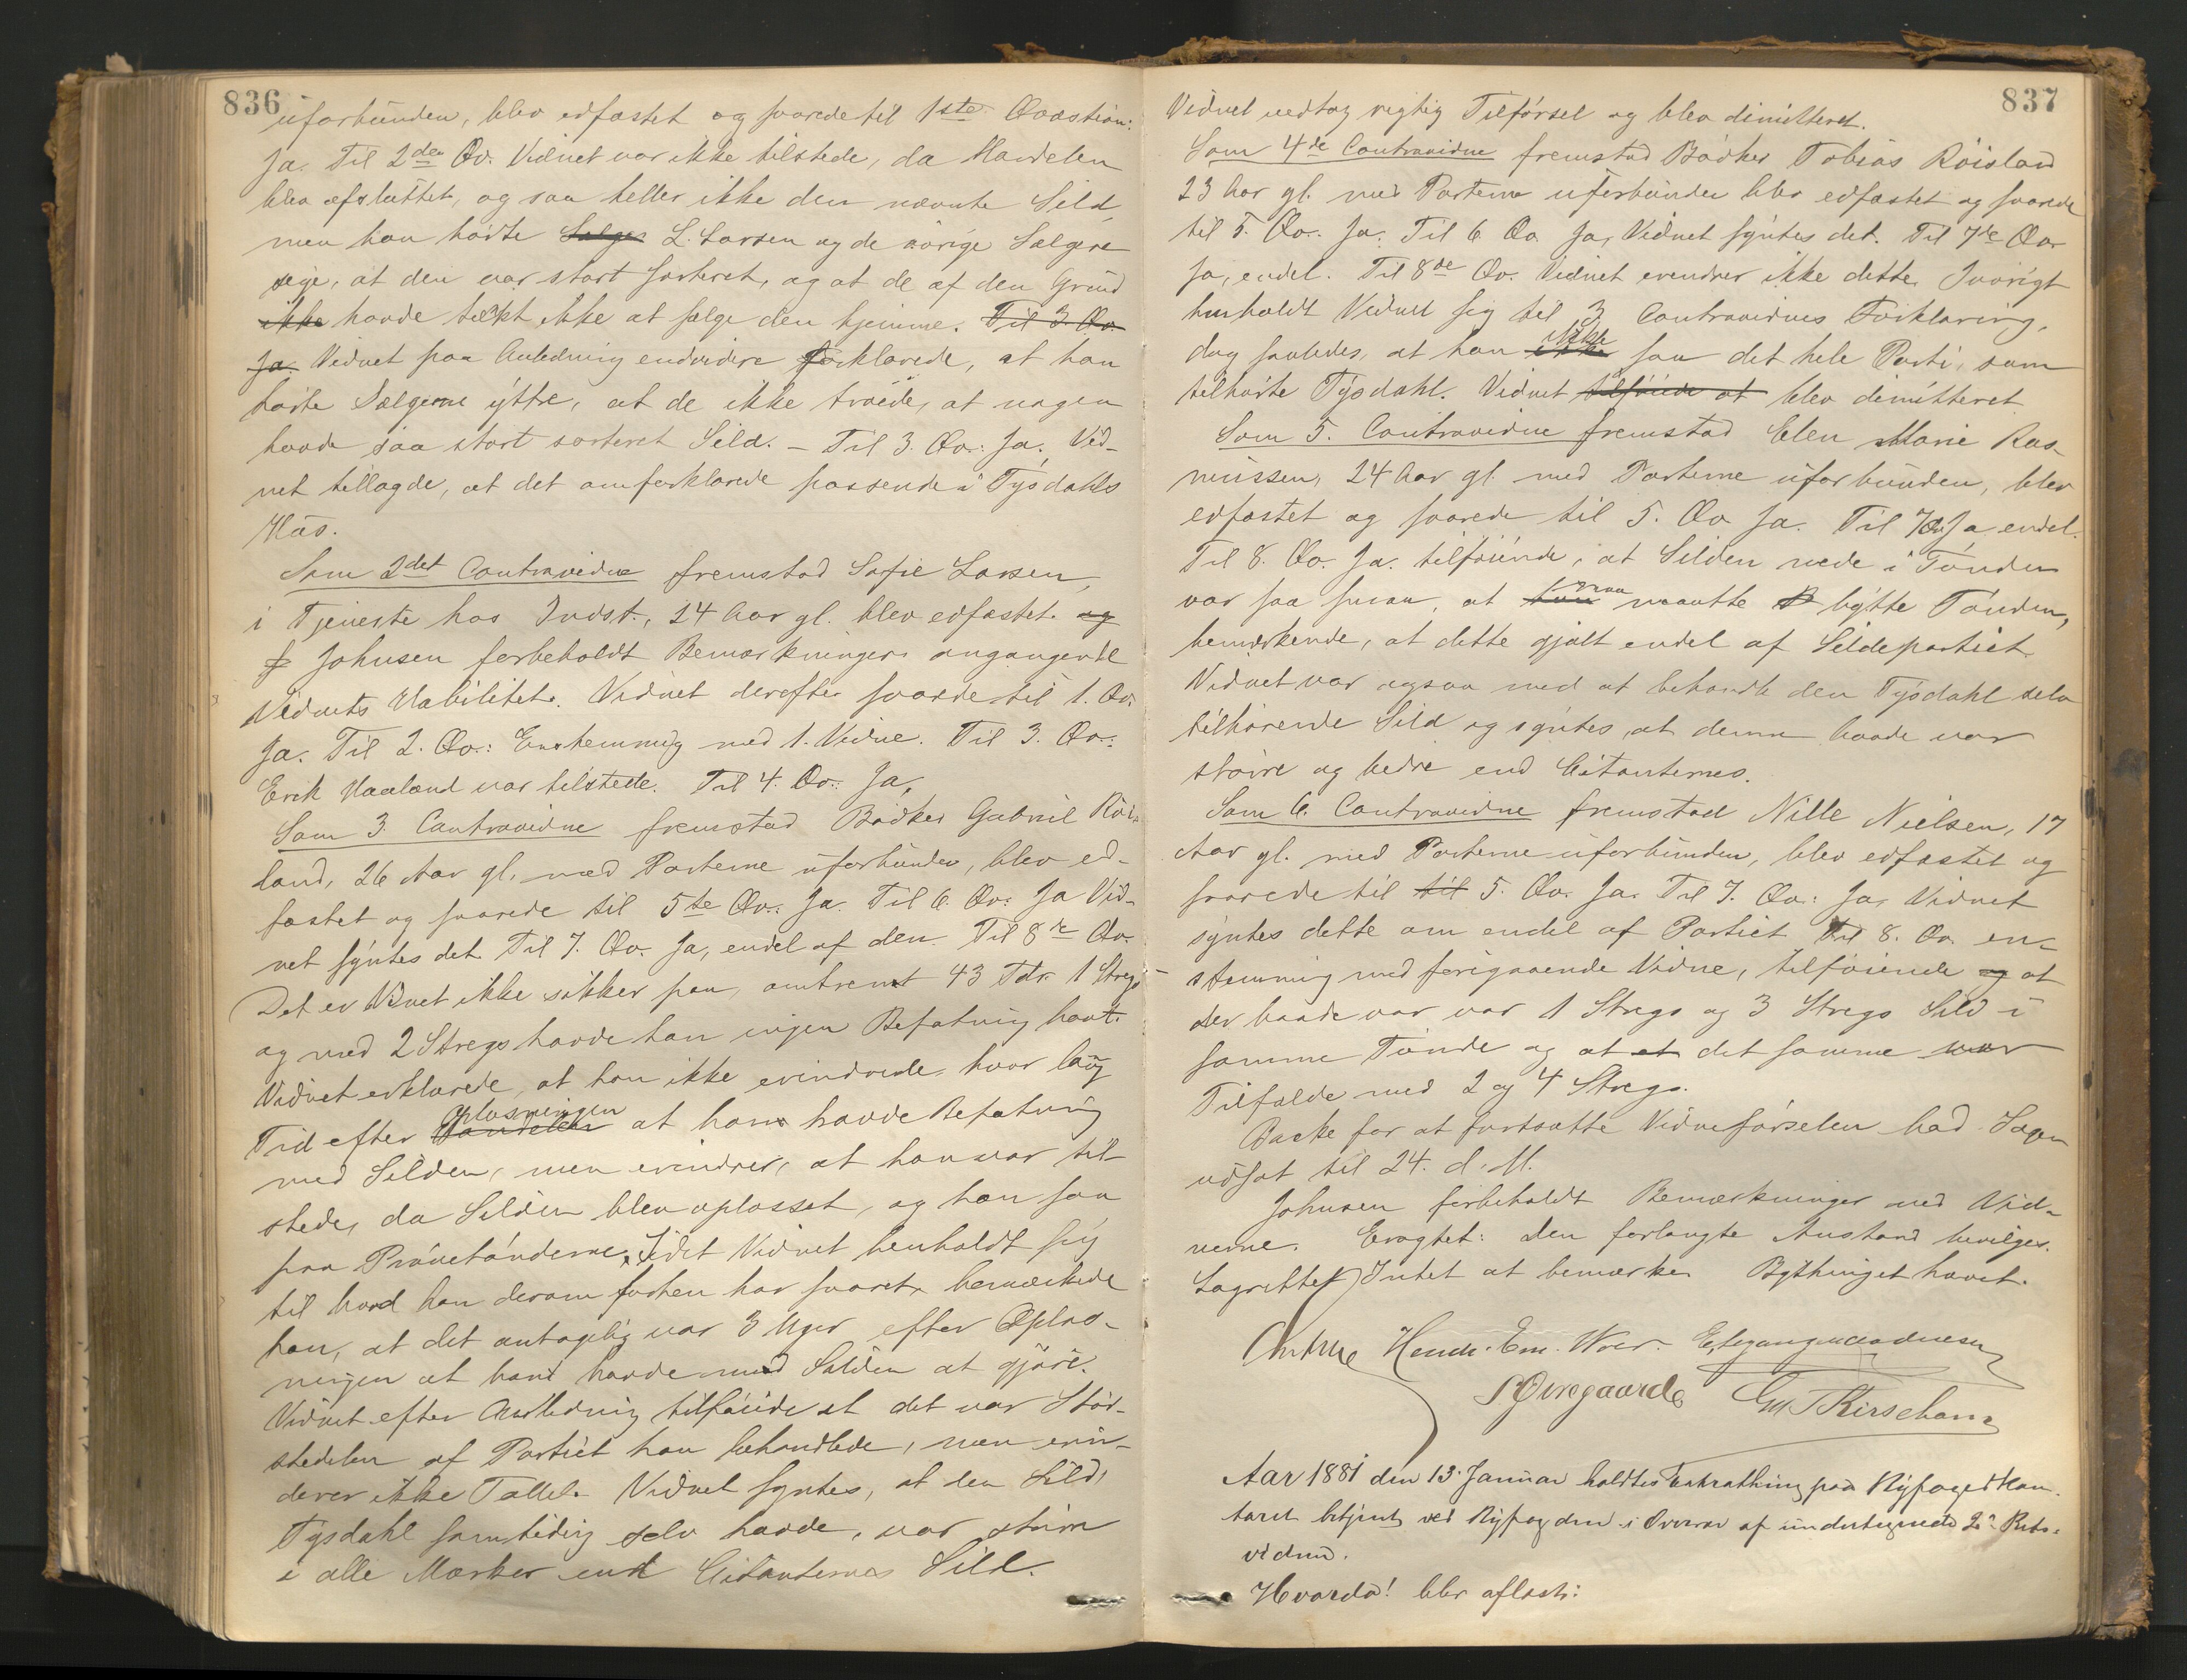 836
uforbunden, blev edfæstet og svarede til 1ste Qvæstion:
Ja. Til 2den Qv. Vidnet var ikke tilstede, da Handelen
blev afsluttet, og saa heller ikke den nævnte Sild,
men han hørte Sælger L. Larsen og de øvrige Sælgere
sige, at den var stort sorteret, og at de af den Grund
ikke havde tækt ikke at sælge den hjemme. Til 3. Qv.
Ja. Vidnet paa Anledning endvidere forklarede, at han
hørte Sælgerne yttre, at de ikke troede, at nogen
havde saa stort sorteret Sild. – Til 3. Qv.: Ja. Vid-
net tillagde, at det omforklarede passerede i Tysdahls
Hus.
Som 2det Contravidne fremstod Sofie Larsen,
i Tjeneste hos Indst., 24 Aar gl. blev edfæstet. og
f Johnsen forbeholdt Bemærkninger angaaende
Vidnets Habilitet. Vidnet derefter svarede til 1. Qv.
Ja. Til 2. Qv.: Enstemmig med 1. Vidne. Til 3. Qv.:
Erik Haaland var tilstede. Til 4. Qv.: Ja.
Som 3. Contravidne fremstod Bødker Gabriel Röis-
land, 26 Aar gl. med Parterne uforbunden, blev ed-
fæstet og svarede til 5te Qv.: Ja. Til 6. Qv.: Ja Vid-
net syntes det. Til 7. Qv. Ja, endel af den. Til 8de Qv.
Det er Vidnet ikke sikker paa, omtrent 43 Tdr. 1 Stregs
og med 2 Stregs havde han ingen Befatning havt.
Vidnet erklærede, at han ikke erindrede, hvor lang
Tid efter Handelen oplosningen at han havde Befatning
med Silden, men erindrer, at han var til-
stede, da Silden blev oplosset, og han saa
paa Prøvetønderne. Idet Vidnet henholdt sig
til hvad han derom forhen har svaret, bemærkede
han, at det antagelig var 3 Uger efter Oplos-
ningen at han havde med Silden at gjøre.
Vidnet efter Anledning tilføiede at det var Stør-
stedelen af Partiet han behandlede, men erin-
drer ikke Tallet. Vidnet syntes, at den Sild,
Tysdahl samtidig selv havde, var større
i alle Mærker end Citanternes Sild.
837
Vidnet vedtog rigtig Tilførsel og blev dimitteret.
Som 4de Contravidne fremstod Bødker Tobias Röisland
23 Aar gl. med Parterne uforbunden blev edfæstet og svarede
til 5. Qv.: Ja. Til 6 Qv. Ja, Vidnet syntes det. Til 7de Qv.
Ja, endel. Til 8de Qv. Vidnet erindrer ikke dette. Iøvrigt
henholdt Vidnet sig til 3 Contravidnes Forklaring,
dog saaledes, at han ikke ikke saa det hele Parti, som
tilhørte Tysdahl. Vidnet tilføiede at blev dimitteret
Som 5. Contravidne fremstod Elen Marie Ras-
mussen, 24 Aar gl. med Parterne uforbunden, blev
edfæstet og svarede til 5. Qv. Ja. Til 7 Qv. Ja, endel.
Til 8. Qv. Ja. tilføiende, at Silden nede i Tønden
var saa smaa, at man maatte bytte Tønden,
bemærkende, at dette gjaldt endel af Sildepartiet.
Vidnet var ogsaa med at behandle den Tysdahl selv
tilhørende Sild og syntes, at denne baade var
større og bedre end Citanternes.
Som 6. Contravidne fremstod Nille Nielsen, 17
Aar gl. med Parterne uforbunden, blev edfæstet og
svarede til til 5. Qv. Ja. Til 7. Qv.: Ja, Vidnet
syntes dette om endel af Partiet Til 8. Qv. en-
stemmig med forigaaende Vidne, tilføiende og at
der baade var var 1 Stregs og 3 Stregs Sild i
samme Tønde og at et det samme var
Tilfælde med 2 og 4 Stregs.
Backe for at fortsætte Vidneførselen bad Sagen
udsat til 24. d. M.
Johnsen forbeholdt Bemærkninger ved Vid-
nerne. Eragtet: Den forlangte Anstand bevilges.
Lagrettet Intet at bemærke. Bythinget hævet.
Hendr. Em.
Aar 1881 den 13. Januar holdtes Extrathing paa Byfogedkon-
toret betjent ved Byfogden i Overvær af undertegnede 2de Rets-
vidner.
Hvorda! blev aflæst: